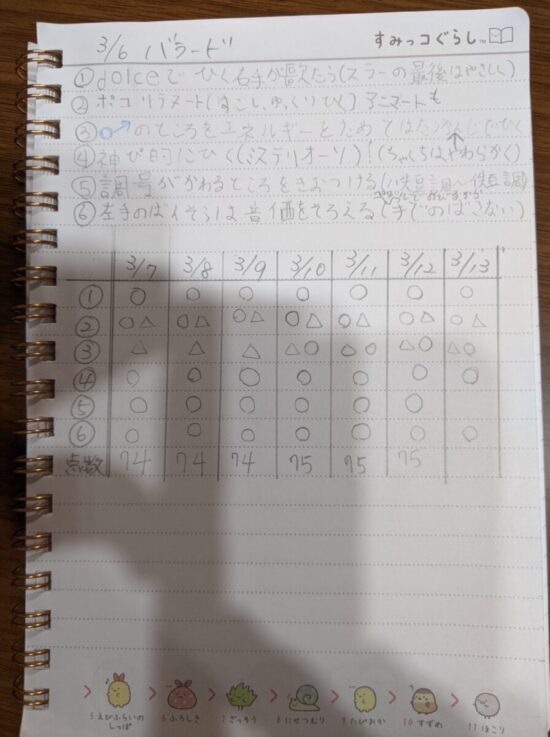 すみっコぐらし™
3/6 バラード
①dolceでひく右手が歌たう(スラーの最後はやさしく)
②ポコリテヌート(すこしゆっくりひく) アニマートも
③のところをエネルギーをためてはたらかんじでひく
④神ぴ的にひく(ミステリオーソ)!(ちゃくちはやわらかく)
⑤調号がかわるところをきおつける
⑥左手のばんそうは音価をそろえる(手でのばさない)
3/7 3/8 3/9 3/10 3/11 3/12 3/13
① ○ ○ ○ ○ ○ ○ ○
② ○△ ○△ ○△ ○△ ○△ ○△ ○△
③ △ △ △ △○ ○○ △○ △○
④ ○ ○ ○ ○ ○ ○ ○
⑤ ○ ○ ○ ○ ○ ○
⑥ ○ ○ ○ ○ ○ ○ ○
点数 74 74 74 75 75 75
5 えびふらいのしっぽ 6 ふろしき 7 ざっそう 8 にせつむり 9 たぴおか 10 すずめ 11 ほこり